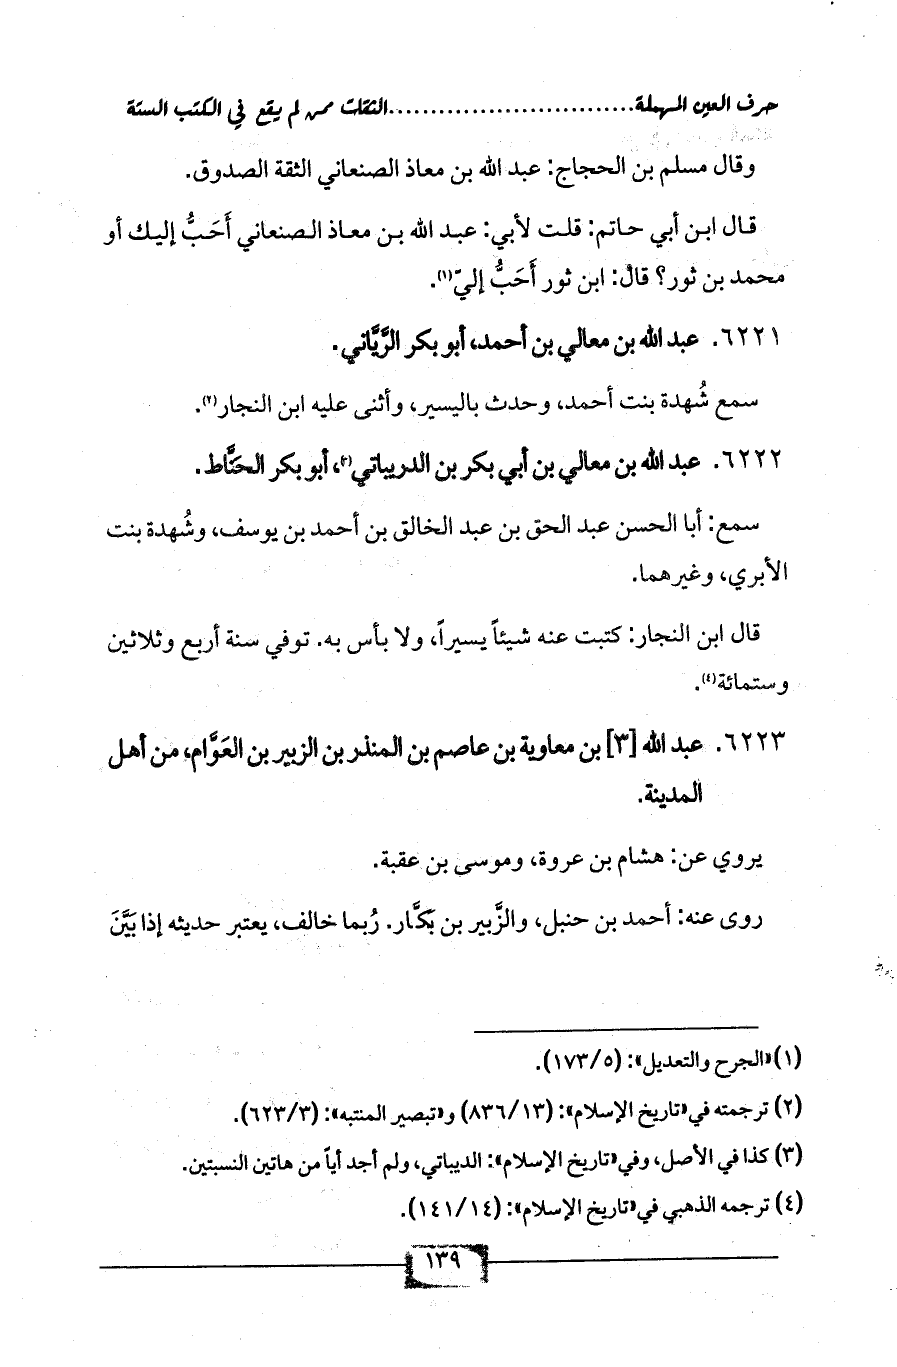 حرف العين المهملة..............................الثقات ممن لم يقع في الكتب الستة
وقال مسلم بن الحجاج: عبد الله بن معاذ الصنعاني الثقة الصدوق.
قال ابن أبي حاتم: قلت لأبي: عبد الله بن معاذ الصنعاني أَحَبُّ إليك أو
محمد بن ثور؟ قال: ابن ثور أَحَبُّ إليّ(١).
٦٢٢١. عبد الله بن معالي بن أحمد، أبو بكر الرَّيَّاني.
سمع شُهدة بنت أحمد، وحدث باليسير، وأثنى عليه ابن النجار(٢).
٦٢٢٢. عبد الله بن معالي بن أبي بكر بن الدريباتي(٣)، أبو بكر الحَنَّاط.
سمع: أبا الحسن عبد الحق بن عبد الخالق بن أحمد بن يوسف، وشُهدة بنت
الأبري، وغيرهما.
قال ابن النجار: كتبت عنه شيئاً يسيراً، ولا بأس به. توفي سنة أربع وثلاثين
وستمائة(٤).
٦٢٢٣. عبد الله [٣] بن معاوية بن عاصم بن المنذر بن الزبير بن العَوَّام، من أهل
المدينة.
يروي عن: هشام بن عروة، وموسى بن عقبة.
روى عنه: أحمد بن حنبل، والزَّبير بن بَكَّار. رُبما خالف، يعتبر حديثه إذا بَيَّنَ
(١) «الجرح والتعديل»: (١٧٣/٥).
(٢) ترجمته في «تاريخ الإسلام»: (٨٣٦/١٣) و«تبصير المنتبه»: (٦٢٣/٣).
(٣) كذا في الأصل، وفي «تاريخ الإسلام»: الديباتي، ولم أجد أياً من هاتين النسبتين.
(٤) ترجمه الذهبي في «تاريخ الإسلام»: (١٤١/١٤).
١٣٩